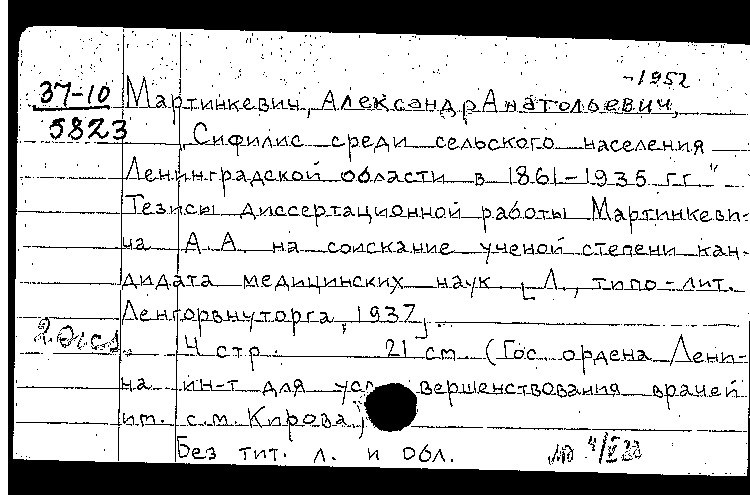 -1952
37-10 Мартинкевич, Александр Анатольевич,
5823 „Сифилис среди сельского населения
Ленинградской области в 1861-1935 г.г."
Тезисы диссертационной работы Мартинкеви-
ча А.А. на соискание ученой степени кан-
дидата медицинских наук. [Л., типо-лит.
Ленгорвнуторга, 1937].
2. экз. 4 стр. 21 см (Гос. ордена Лени-
на ин-т для усо вершенствования врачей
им. с.м. Кирова)
Без тит. л. и обл.